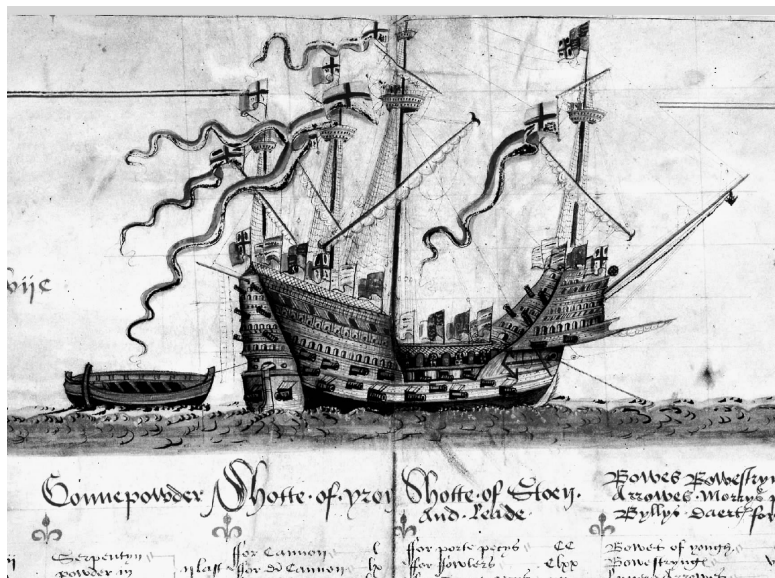 Gonnepowder
Shotte · of · yroy
Shotte · of · Stoey ·
And · Leade ·
Bowes Bowestryn
Arrowes · Morrys
Byllys · Daert for
Serpentyn
powder in
ffor Cannon
ffor di Cannon
l
lx
ffor porte pecys
ffor fowlers
CC
Clxx
Bowes of yough
Bowestryng